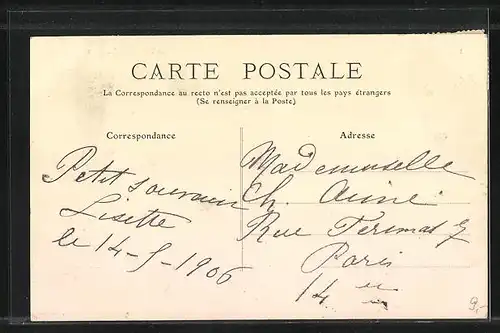 CARTE POSTALE
La Correspondance au recto n'est pas acceptée par tous les pays étrangers
(Se renseigner à la Poste)
Correspondance
Adresse
Petit souvenir
Lisette
le 14-5-1906
Mademoiselle
Ch. Aimé
Rue
Paris
14 e
9.-